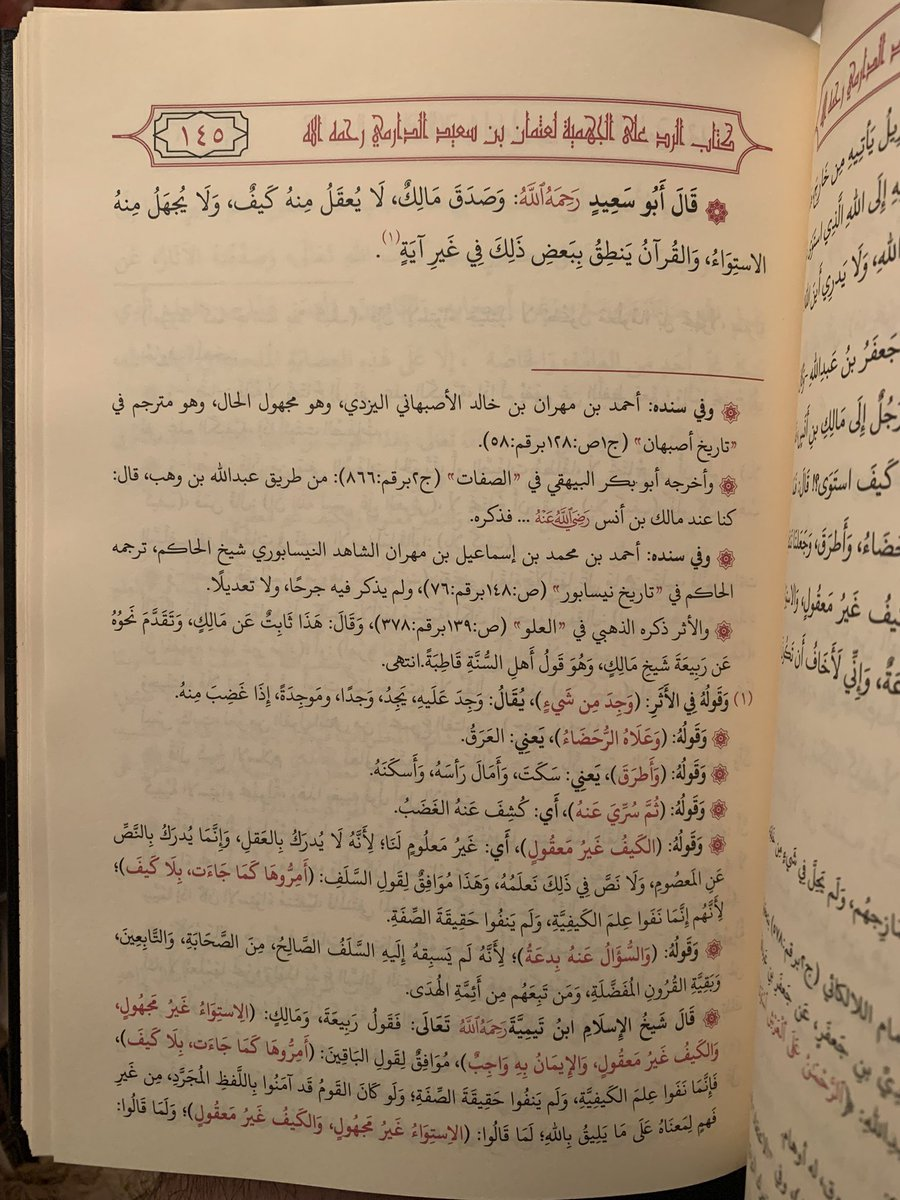 كتاب الرد على الجهمية لعثمان بن سعيد الدارمي رحمه الله
١٤٥
قَالَ أَبُو سَعِيدٍ رَحِمَهُ اللَّهُ: وَصَدَقَ مَالِكٌ، لَا يُعقَلُ مِنهُ كَيفٌ، وَلَا يُجهَلُ مِنهُ
الاستِوَاءُ، وَالقُرآنُ يَنطِقُ بِبَعضِ ذَلِكَ فِي غَيرِ آيَةٍ (١) .
وفي سنده: أحمد بن مهران بن خالد الأصبهاني اليزدي، وهو مجهول الحال، وهو مترجم في
"تاريخ أصبهان" (ج١ص:١٢٨برقم:٥٨).
وأخرجه أبو بكر البيهقي في "الصفات" (ج٢برقم:٨٦٦): من طريق عبدالله بن وهب، قال:
كنا عند مالك بن أنس رَضِيَ اللَّهُ عَنْهُ ... فذكره.
وفي سنده: أحمد بن محمد بن إسماعيل بن مهران الشاهد النيسابوري شيخ الحاكم، ترجمه
الحاكم في "تاريخ نيسابور" (ص:١٤٨برقم:٧٦)، ولم يذكر فيه جرحًا، ولا تعديلًا.
والأثر ذكره الذهبي في "العلو" (ص:١٣٩برقم:٣٧٨)، وَقَالَ: هَذَا ثَابِتٌ عَن مَالِكٍ، وَتَقَدَّمَ نَحوُهُ
عَن رَبِيعَةَ شَيخِ مَالِكٍ، وَهُوَ قَولُ أَهلِ السُّنَّةِ قَاطِبَةً.انتهى.
(١) وَقَولُهُ فِي الأَثَرِ: (وَجِدَ مِن شَيءٍ)، يُقَالُ: وَجِدَ عَلَيهِ، يَجِدُ، وَجدًا، وَموجِدَةً، إِذَا غَضِبَ مِنهُ.
وَقَولُهُ: (وَعَلَاهُ الرُّحَضَاءُ)، يَعنِي: العَرَقُ.
وَقَولُهُ: (وَأَطرَقَ)، يَعنِي: سَكَتَ، وَأَمَالَ رَأسَهُ، وَأَسكَنَهُ.
وَقَولُهُ: (ثُمَّ سُرِّيَ عَنهُ)، أَي: كُشِفَ عَنهُ الغَضَبُ.
وَقَولُهُ: (الكَيفُ غَيرُ مَعقُولٍ)، أَي: غَيرُ مَعلُومٍ لَنَا؛ لِأَنَّهُ لَا يُدرَكُ بِالعَقلِ، وَإِنَّمَا يُدرَكُ بِالنَّصِّ
عَنِ المَعصُومِ، وَلَا نَصَّ فِي ذَلِكَ نَعلَمُهُ، وَهَذَا مُوَافِقٌ لِقَولِ السَّلَفِ: (أَمِرُّوهَا كَمَا جَاءَت، بِلَا كَيفَ)؛
لِأَنَّهُم إِنَّمَا نَفَوا عِلمَ الكَيفِيَّةِ، وَلَم يَنفُوا حَقِيقَةَ الصِّفَةِ.
وَقَولُهُ: (وَالسُّؤَالُ عَنهُ بِدعَةٌ)؛ لِأَنَّهُ لَم يَسبِقهُ إِلَيهِ السَّلَفُ الصَّالِحُ، مِنَ الصَّحَابَةِ، وَالتَّابِعِينَ،
وَبَقِيَّةِ القُرُونِ المُفَضَّلَةِ، وَمَن تَبِعَهُم مِن أَئِمَّةِ الهُدَى.
قَالَ شَيخُ الإِسلَامِ ابنُ تَيمِيَّةَ رَحِمَهُ اللَّهُ تَعَالَى: فَقَولُ رَبِيعَةَ، وَمَالِكٍ: (الِاستِوَاءُ غَيرُ مَجهُولٍ،
وَالكَيفُ غَيرُ مَعقُولٍ، وَالإِيمَانُ بِهِ وَاجِبٌ)، مُوَافِقٌ لِقَولِ البَاقِينَ: (أَمِرُّوهَا كَمَا جَاءَت، بِلَا كَيفَ)،
فَإِنَّمَا نَفَوا عِلمَ الكَيفِيَّةِ، وَلَم يَنفُوا حَقِيقَةَ الصِّفَةِ؛ وَلَو كَانَ القَومُ قَد آمَنُوا بِاللَّفظِ المُجَرَّدِ، مِن غَيرِ
فَهمٍ لِمَعنَاهُ عَلَى مَا يَلِيقُ بِاللهِ؛ لَمَا قَالُوا: (الِاستِوَاءُ غَيرُ مَجهُولٍ، وَالكَيفُ غَيرُ مَعقُولٍ)؛ وَلَمَا قَالُوا: